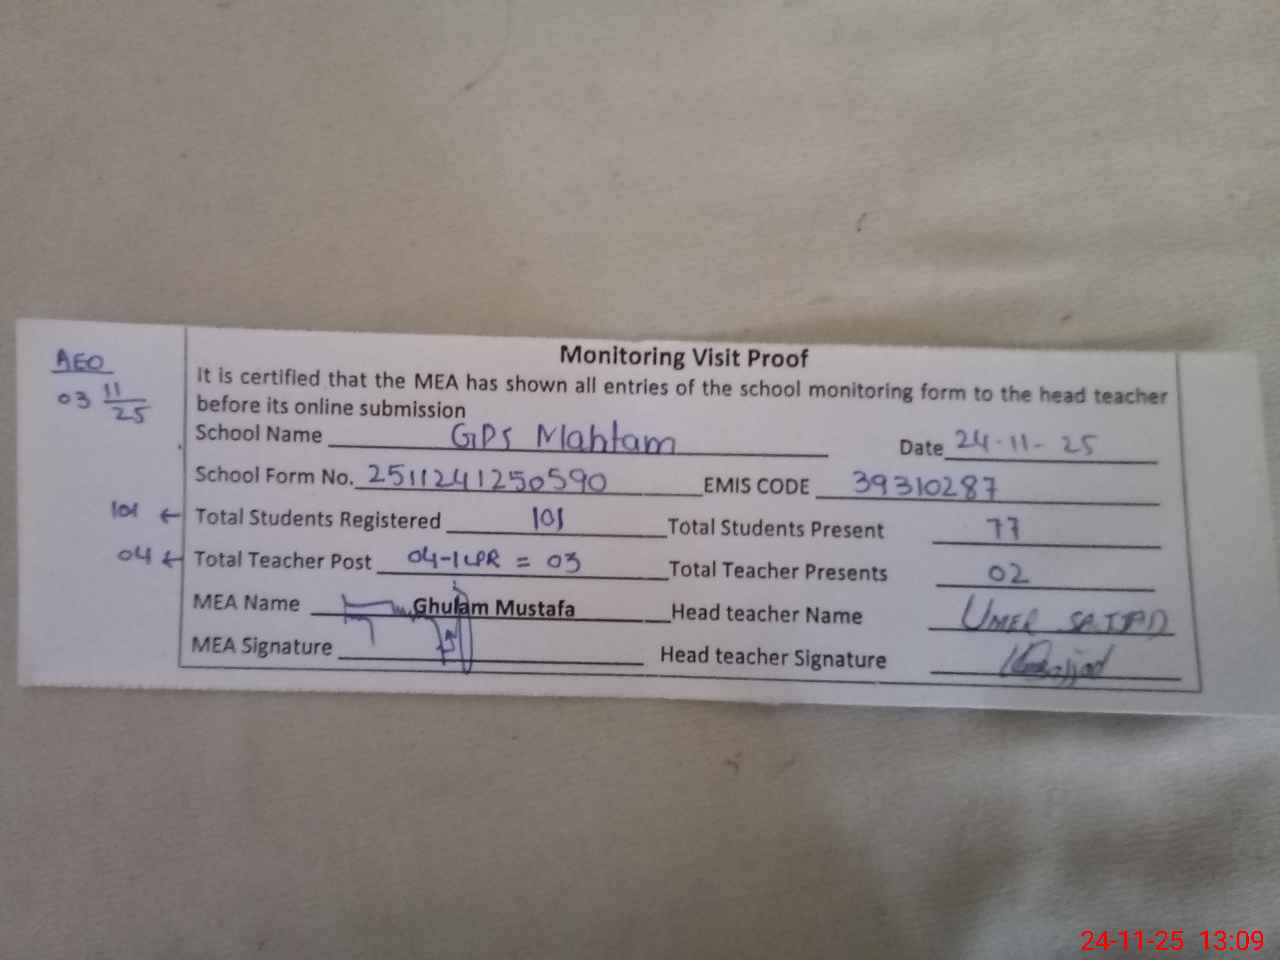 AEO
03 11/25
Monitoring Visit Proof
It is certified that the MEA has shown all entries of the school monitoring form to the head teacher
before its online submission
School Name GPS Mahtam Date 24-11-25
School Form No. 2511241250590 EMIS CODE 39310287
101 ← Total Students Registered 101 Total Students Present 77
04 ← Total Teacher Post 04-1 LPR = 03 Total Teacher Presents 02
MEA Name Ghulam Mustafa Head teacher Name UMER SAJJAD
MEA Signature Head teacher Signature
24-11-25 13:09